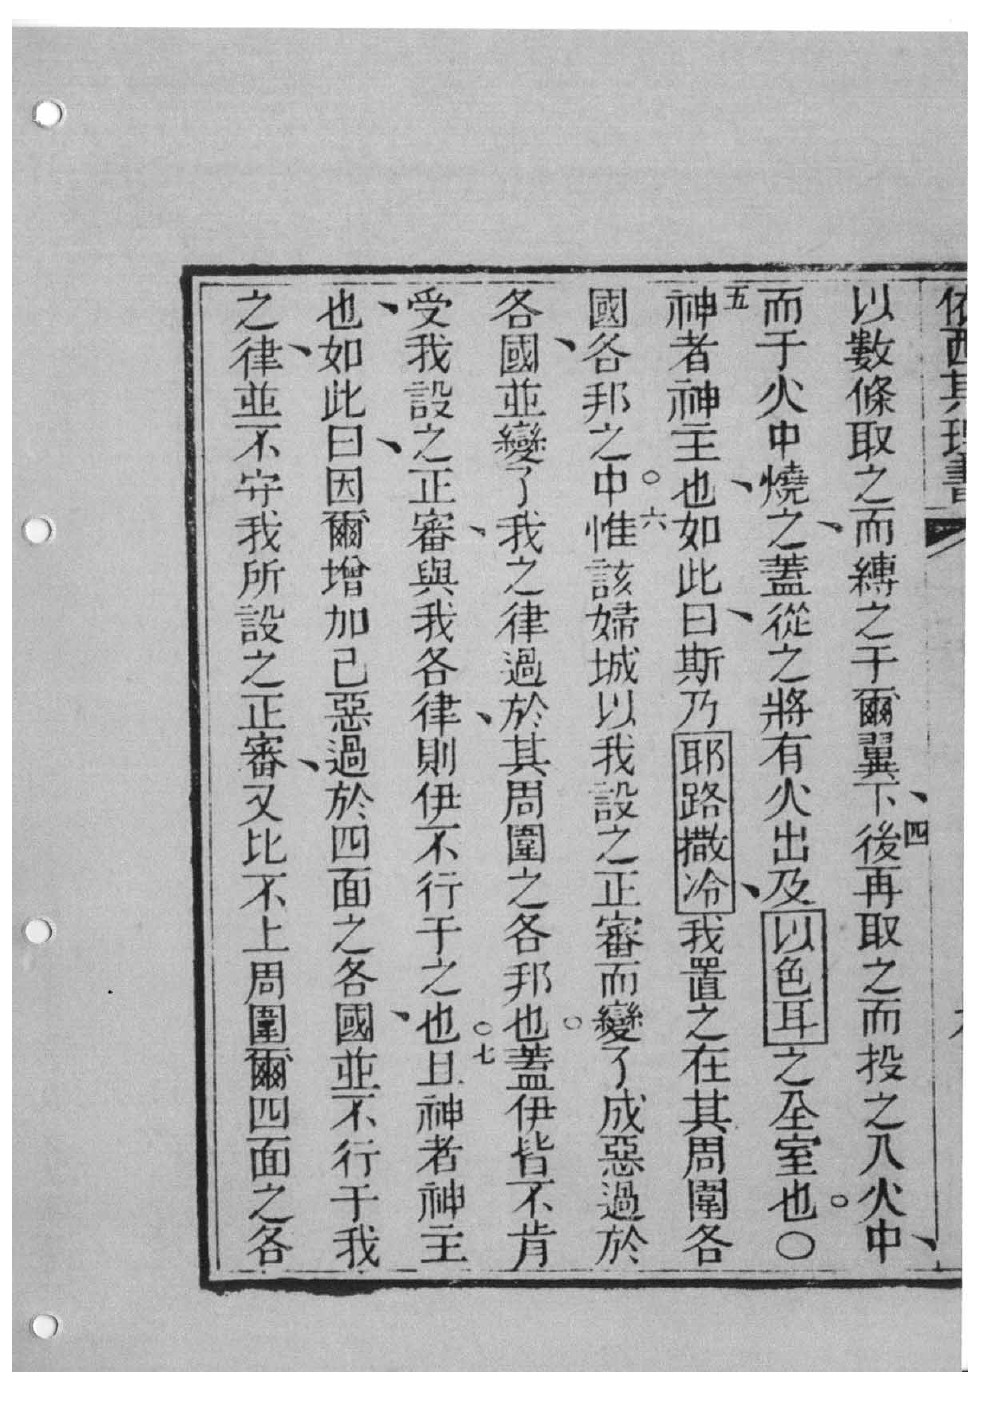 依西其理書
以數條取之而縛之于爾翼下、四後再取之而投之入火中、
而于火中燒之、蓋從之將有火出及以色耳之全室也。○
五神者神主也、如此曰、斯乃耶路撒冷、我置之在其周圍各
國各邦之中。六惟該婦城以我設之正審而變了成惡過於
各國、並變了我之律過於其周圍之各邦也。蓋伊皆不肯
受我設之正審、與我各律、則伊不行于之也。七且神者神主
也、如此曰、因爾增加己惡過於四面之各國、並不行于我
之律、並不守我所設之正審、又比不上周圍爾四面之各